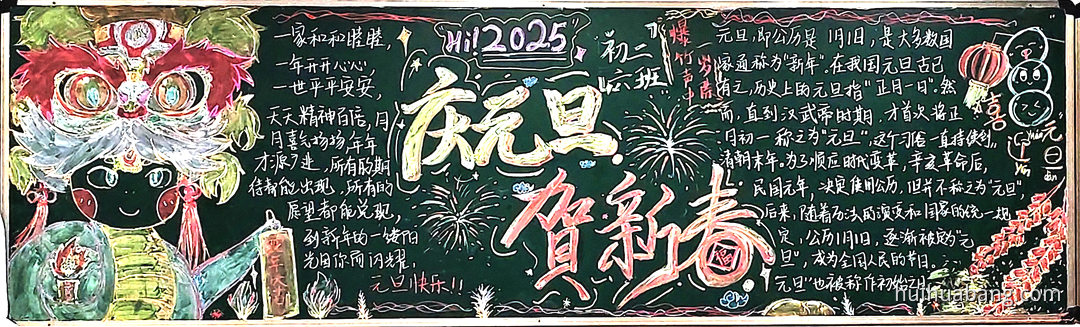 一家和和睦睦，
一年开开心心
一世平平安安，
天天精神百倍，月
月喜气扬扬，年年
才源广进，所有的期
待都能出现，所有的
愿望都能兑现，
到新年的一缕阳
光因你而闪耀，
元旦快乐！！
Hi! 2025
初二
六班
庆元旦
贺新春
爆竹声中
一岁除
元旦，即公历是1月1日，是大多数国
家通称为"新年"。在我国元旦古已
有之，历史上的元旦指"正月一日"。然
而，直到汉武帝时期，才首次将正
月初一称之为"元旦"，这个习俗一直持续到
清朝末年。为了顺应时代变革，辛亥革命后，
民国元年，决定使用公历，但并不称之为"元旦"
后来，随着历法的演变和国家的统一规
定，公历1月1日，逐渐被定为"元
旦"，成为全国人民的节日。
元旦"也被称作初始之日
喜
迎
元
旦
huihuabang.com